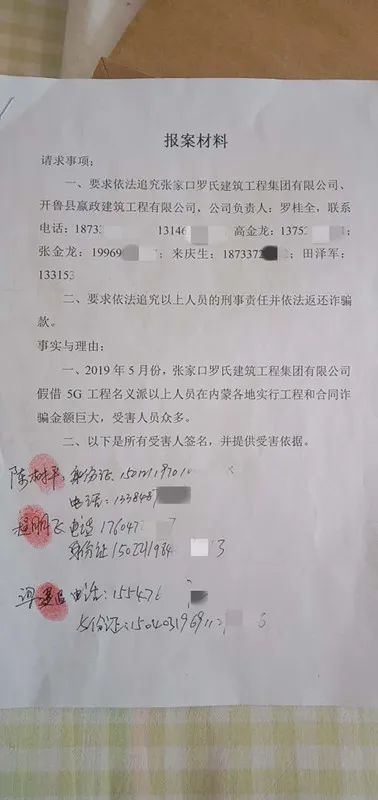 报案材料
请求事项：
一、要求依法追究张家口罗氏建筑工程集团有限公司、
开鲁县嬴政建筑工程有限公司，公司负责人：罗桂全，联系
电话：1873 13146 高金龙：1375
张金龙：1996 来庆生：187337 2；田泽军：
133153
二、要求依法追究以上人员的刑事责任并依法返还诈骗
款。
事实与理由：
一、2019 年 5 月份，张家口罗氏建筑工程集团有限公司
假借 5G 工程名义派以上人员在内蒙各地实行工程和合同诈
骗金额巨大，受害人员众多。
二、以下是所有受害人签名，并提供受害依据。
陈 平：身份证
电话：133848
电话 17604
身份证 150221984 3
电话：155476
身份证：